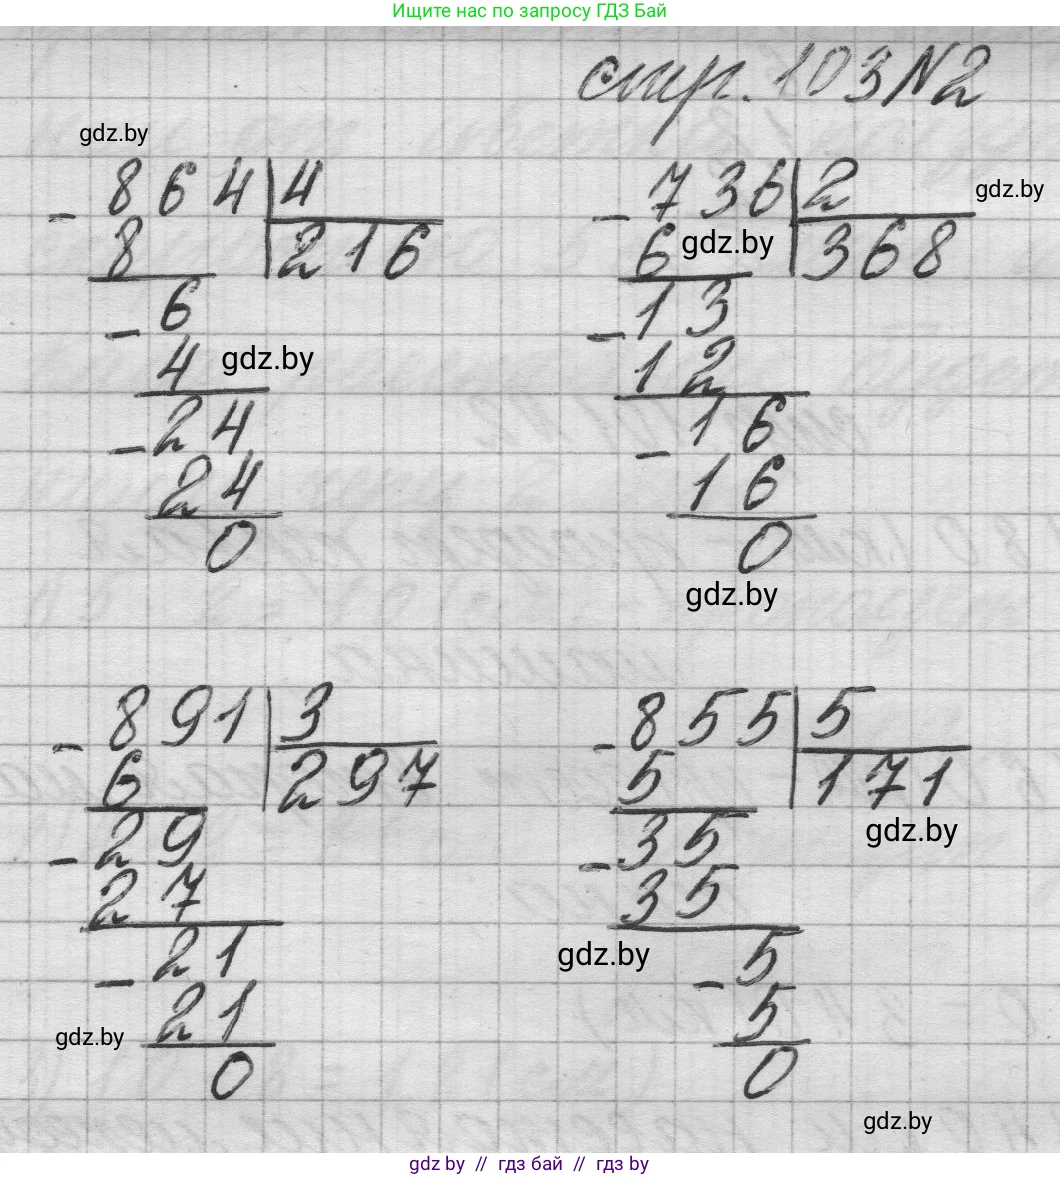 Ищите нас по запросу ГДЗ Бай
стр. 103 N2
gdz.by
864 4
- 8 216
6
- 4
24
- 24
0
gdz.by
736 2
- 6 368
13
- 12
16
- 16
0
gdz.by
gdz.by
gdz.by
891 3
- 6 297
29
- 27
21
- 21
0
gdz.by
855 5
- 5 171
35
- 35
5
- 5
0
gdz.by
gdz.by
gdz.by
gdz by // гдз бай // гдз by